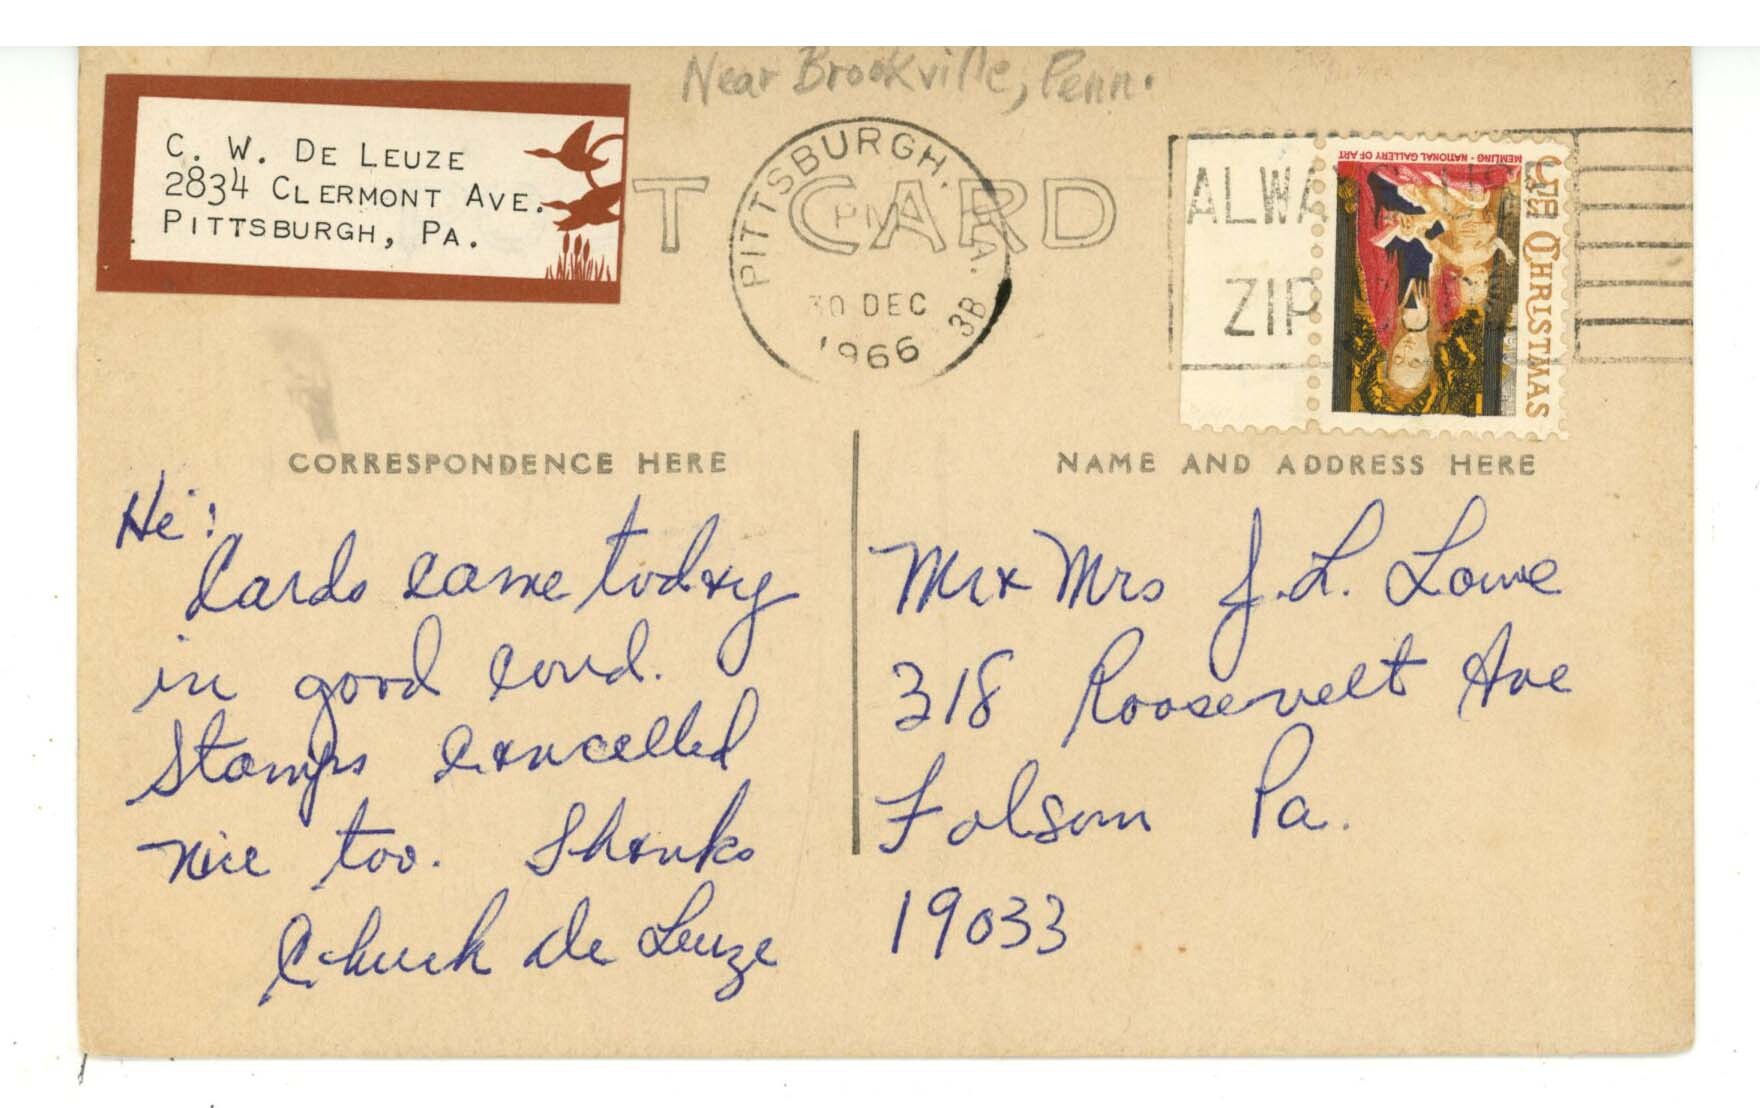 Near Brookville, Penn.
C. W. DE LEUZE
2834 CLERMONT AVE.
PITTSBURGH, PA.
T CARD
PITTSBURGH, PA.
PM
30 DEC
1966
3B
ALWAYS USE
ZIP CODE
MEMLING · NATIONAL GALLERY OF ART
CHRISTMAS
CORRESPONDENCE HERE
Hi:
Cards came today
in good cond.
Stamps cancelled
nice too. Thanks
Chuck de Leuze
NAME AND ADDRESS HERE
Mr x Mrs J. L. Lowe
318 Roosevelt Ave
Folsom Pa.
19033